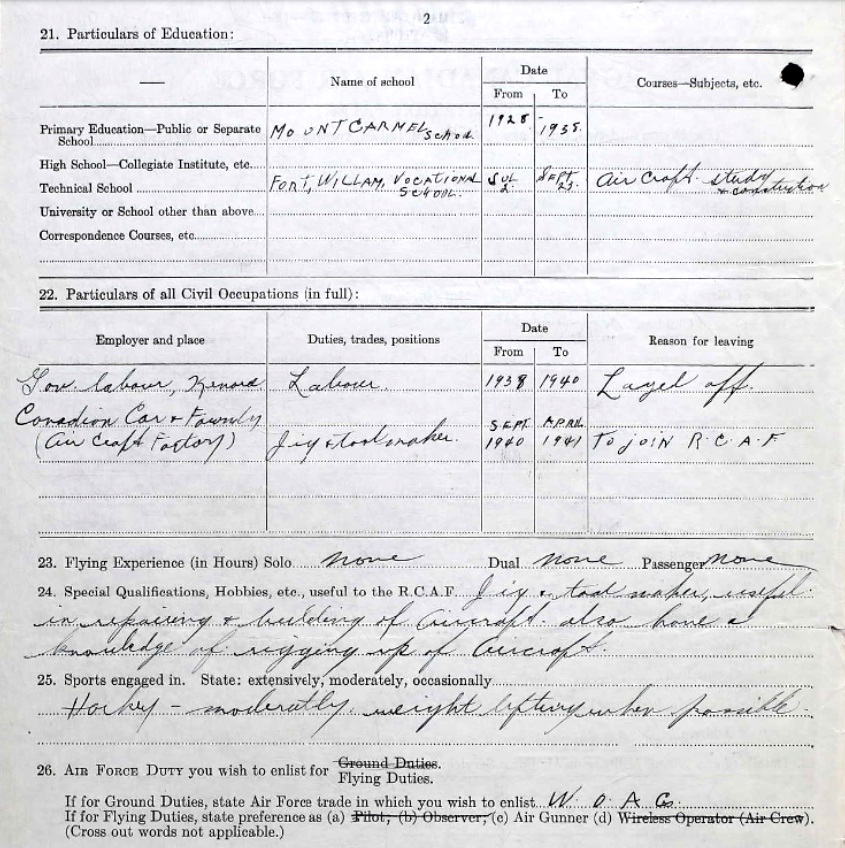 2
21. Particulars of Education:
— Name of school Date From To Courses—Subjects, etc.
Primary Education—Public or Separate School MOUNT CARMEL SCHOOL 1928 - 1938.
High School—Collegiate Institute, etc.
Technical School FORT, WILLAM, VOCATIONAL SCHOOL. JUL 2 SEPT 23. Air Craft. study + construction
University or School other than above
Correspondence Courses, etc.
22. Particulars of all Civil Occupations (in full):
Employer and place Duties, trades, positions Date From To Reason for leaving
Gov. labour, Kenora Labour. 1938 1940 Layed off.
Canadian Car + Foundry SEPT. APRIL
(Air Craft Factory) Jig & tool maker. 1940 1941 To JOIN R.C.A.F
23. Flying Experience (in Hours) Solo none Dual none Passenger none
24. Special Qualifications, Hobbies, etc., useful to the R.C.A.F. Jig + tool maker, useful
in repairing + building of Aircraft. also have a
knowledge of rigging up of Aircraft.
25. Sports engaged in. State: extensively, moderately, occasionally
Hockey – moderatly. weight lifting when possible.
26. AIR FORCE DUTY you wish to enlist for Ground Duties.
Flying Duties.
If for Ground Duties, state Air Force trade in which you wish to enlist W. O. A. G.
If for Flying Duties, state preference as (a) Pilot; (b) Observer; (c) Air Gunner (d) Wireless Operator (Air Crew).
(Cross out words not applicable.)